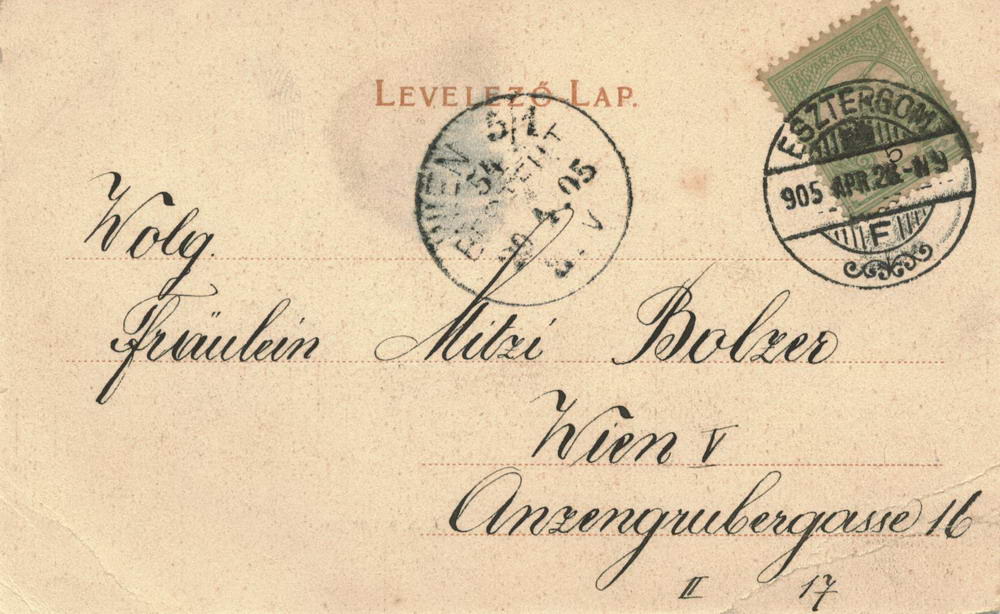 LEVELEZŐ LAP.
WIEN 5/1
54
BESTELLT
ESZTERGOM
905 APR.28.
F
Wolg.
Fräulein Mitzi Bolzer
Wien V
Anzengrubergasse 16
II 17